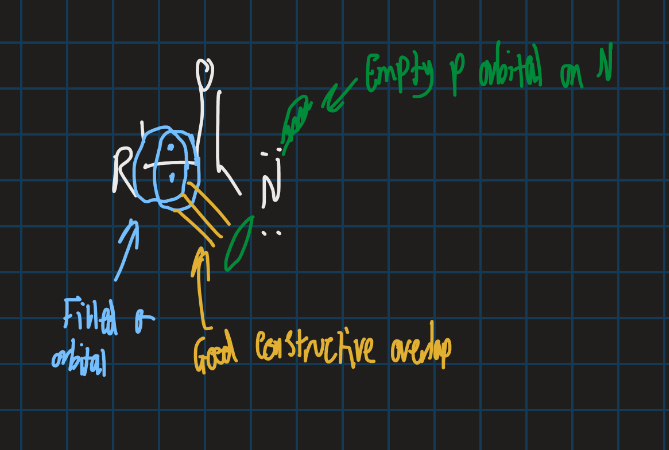 O
Empty p orbital on N
R
N
Filled σ
orbital
Good constructive overlap